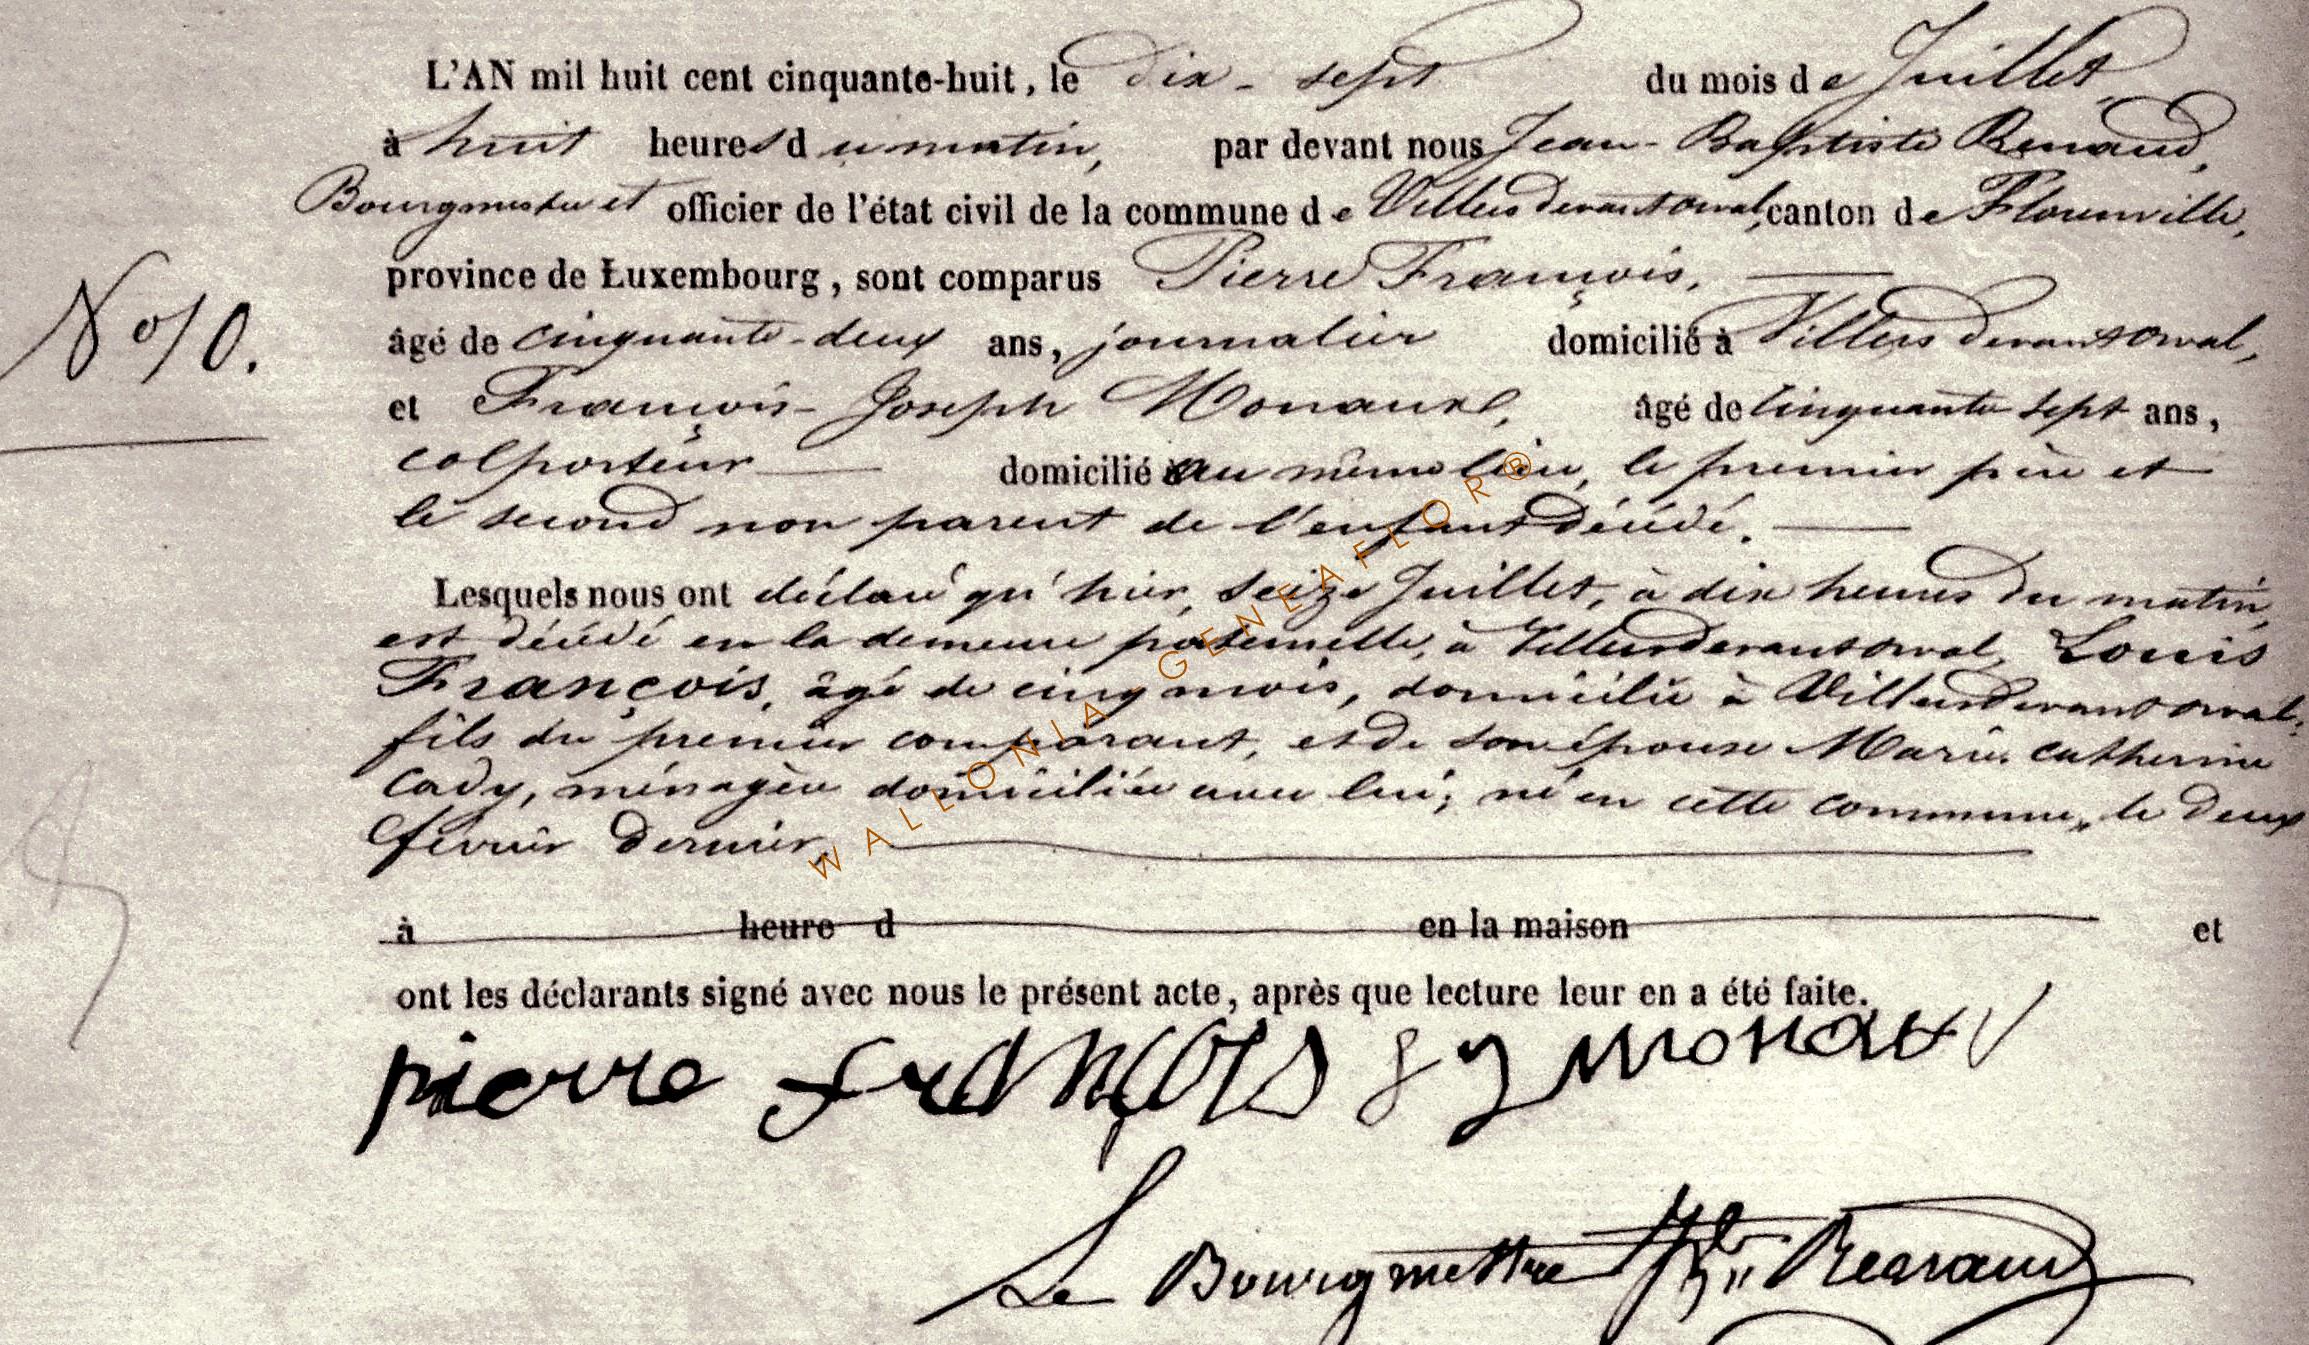 L'AN mil huit cent cinquante-huit, le dix-sept du mois de Juillet,
à huit heures du matin, par devant nous Jean-Baptiste Renaud,
Bourgmestre et officier de l'état civil de la commune de Villers devant orval, canton de Florenville,
province de Luxembourg, sont comparus Pierre François,
N° 10.
âgé de cinquante-deux ans, journalier domicilié à Villers devant orval,
et François-Joseph Monaux, âgé de cinquante sept ans,
colporteur domicilié au même lieu, le premier père et
le second non parent de l'enfant décédé.
Lesquels nous ont déclaré qu'hier, seize Juillet, à dix heures du matin,
est décédé en la demeure paternelle, à Villers devant orval, Louis
François, âgé de cinq mois, domicilié à Villers devant orval,
fils du premier comparant, et de son épouse Marie catherine
Cady, ménagère domiciliée avec lui; né en cette commune, le deux
février dernier.
à heure d en la maison et
ont les déclarants signé avec nous le présent acte, après que lecture leur en a été faite.
pierre françois monaux
Le Bourgmestre Renaud
WALLONIA GENEAFLOR®